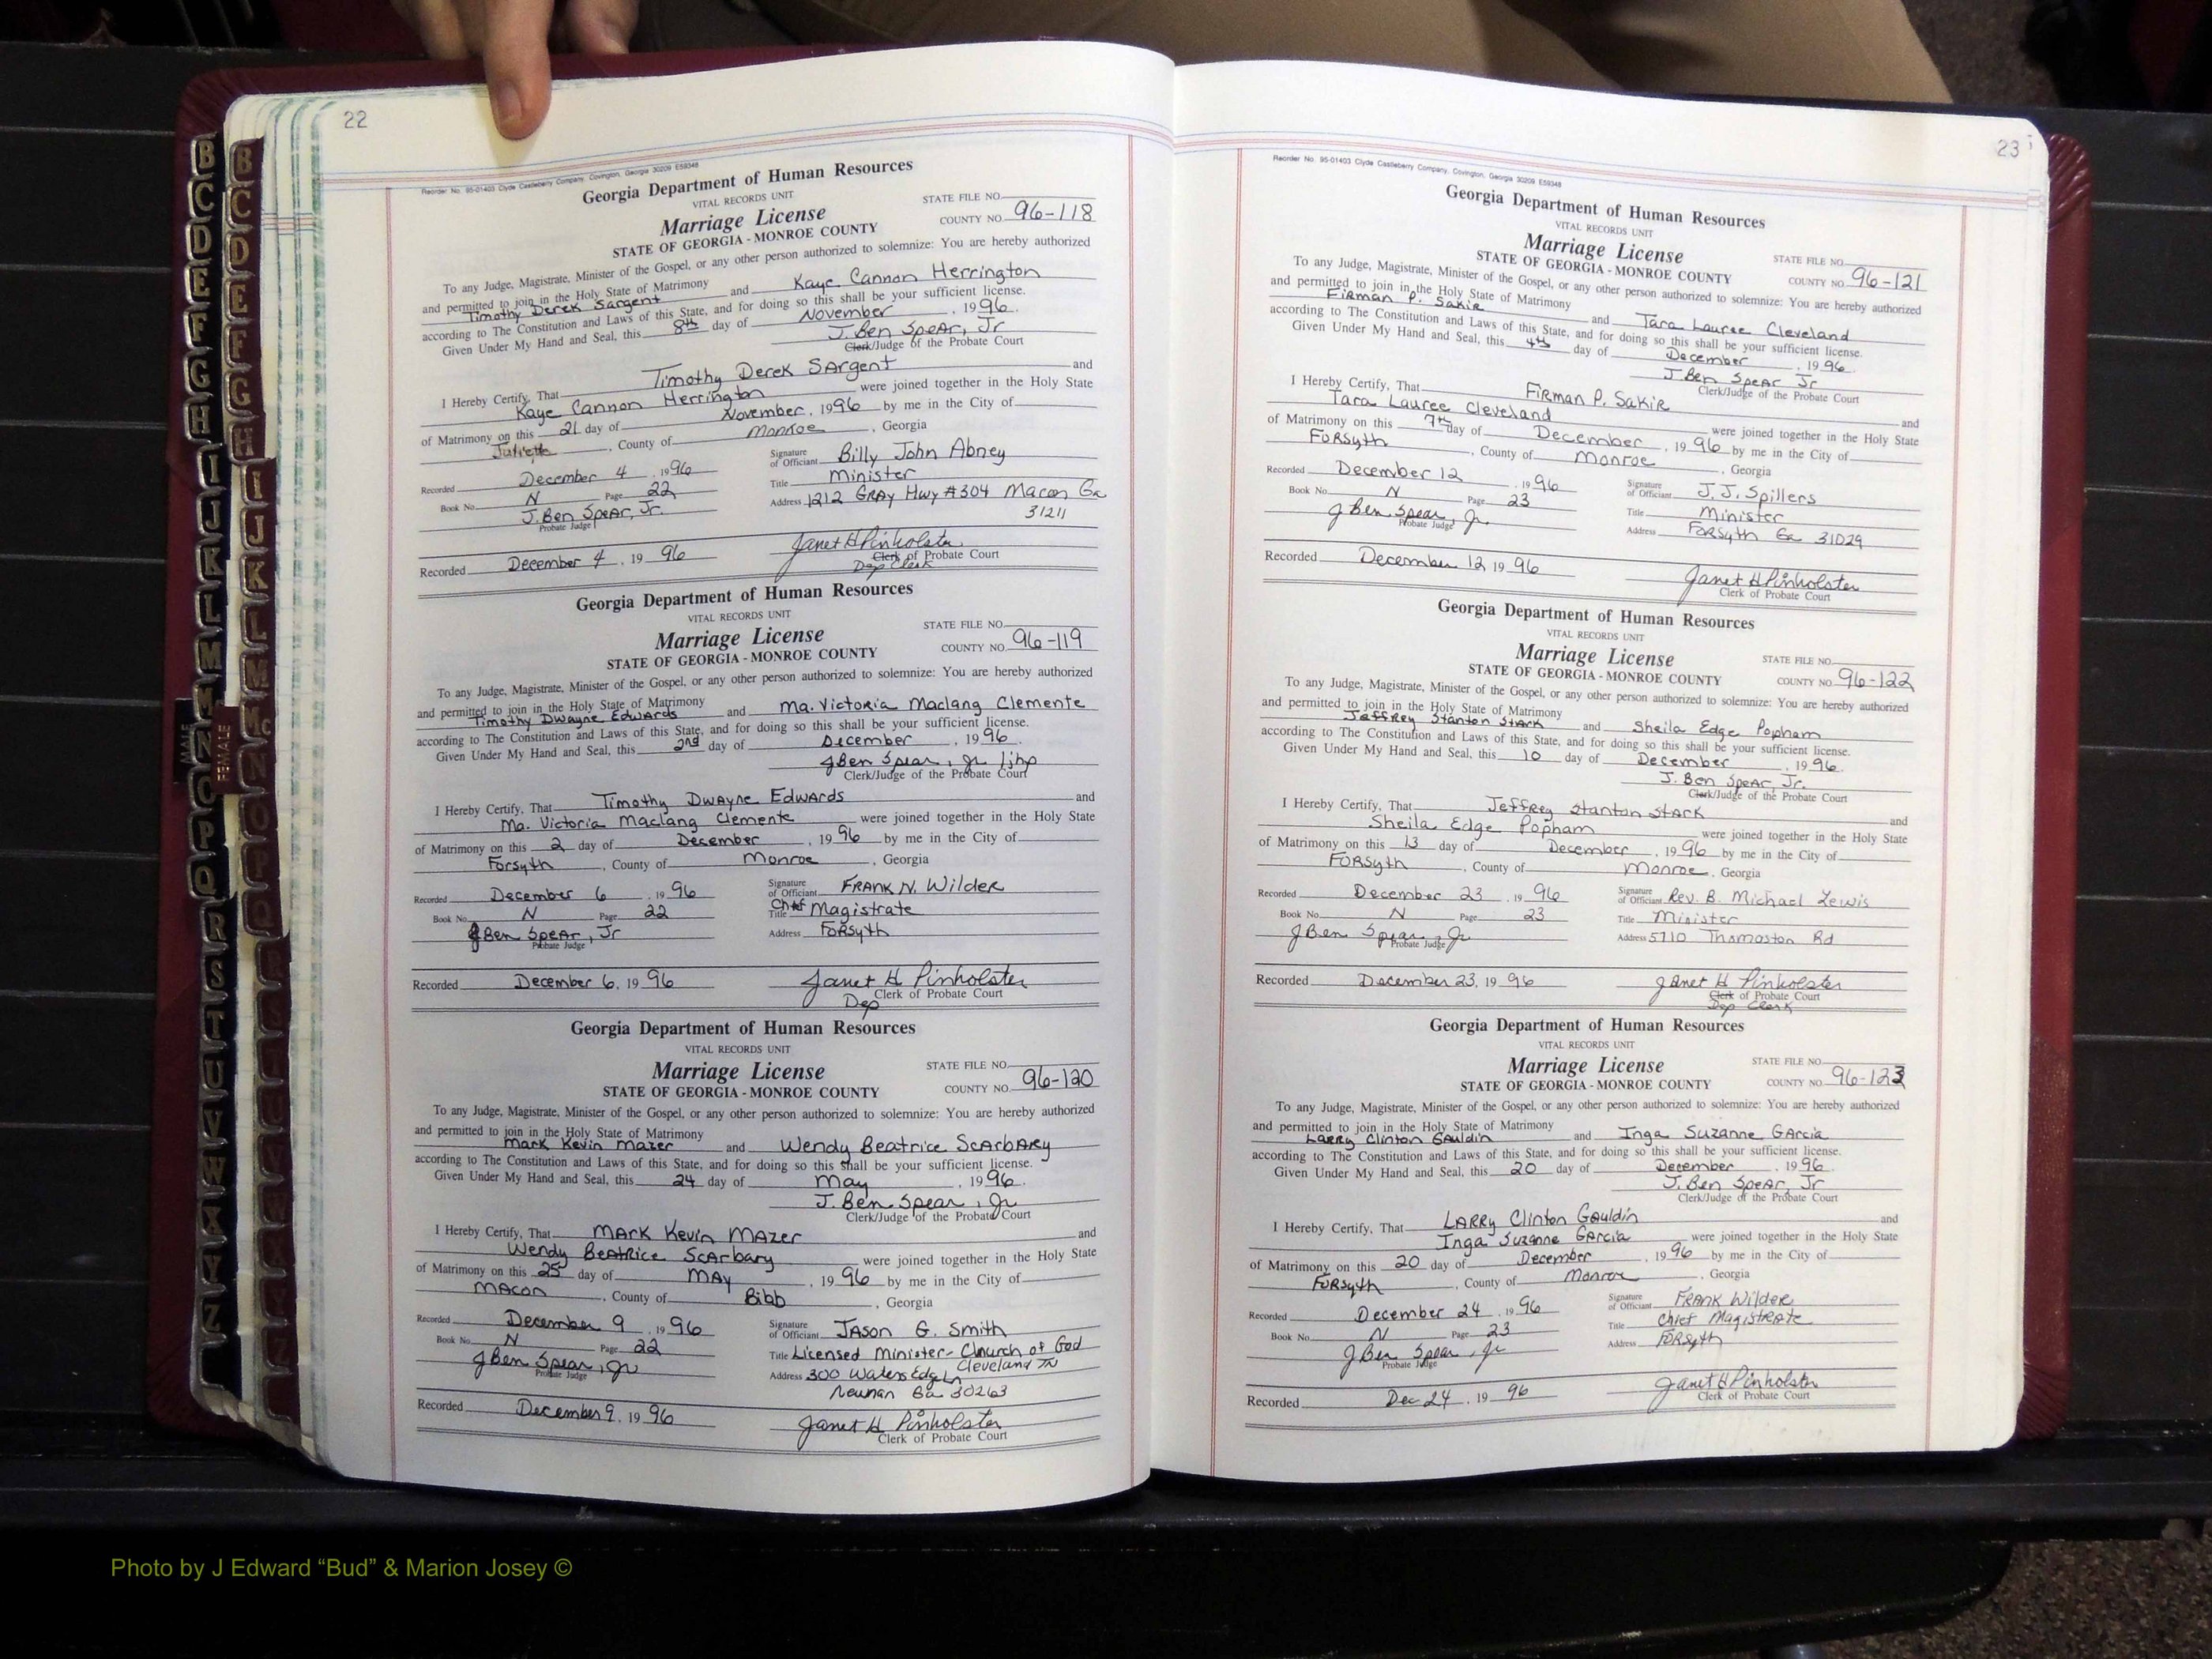 22
Reorder No. 95-01403 Clyde Castleberry Company, Covington, Georgia 30209 E59348
Georgia Department of Human Resources
VITAL RECORDS UNIT
Marriage License
STATE OF GEORGIA - MONROE COUNTY
STATE FILE NO.
COUNTY NO. 96-118
To any Judge, Magistrate, Minister of the Gospel, or any other person authorized to solemnize: You are hereby authorized
and permitted to join in the Holy State of Matrimony
Timothy Derek Sargent and Kaye Cannon Herrington
according to The Constitution and Laws of this State, and for doing so this shall be your sufficient license.
Given Under My Hand and Seal, this 8th day of November, 1996.
J. Ben Spear, Jr
Clerk/Judge of the Probate Court
I Hereby Certify, That Timothy Derek Sargent and
Kaye Cannon Herrington were joined together in the Holy State
of Matrimony on this 21 day of November, 1996 by me in the City of
Juliette, County of Monroe, Georgia
Recorded December 4, 1996
Book No. N Page 22
J. Ben Spear, Jr.
Probate Judge
Signature of Officiant Billy John Abney
Title Minister
Address 1212 Gray Hwy #304 Macon Ga
31211
Recorded December 4, 1996
Janet H Pinholster
Clerk of Probate Court
Dep Clerk
Georgia Department of Human Resources
VITAL RECORDS UNIT
Marriage License
STATE OF GEORGIA - MONROE COUNTY
STATE FILE NO.
COUNTY NO. 96-119
To any Judge, Magistrate, Minister of the Gospel, or any other person authorized to solemnize: You are hereby authorized
and permitted to join in the Holy State of Matrimony
Timothy Dwayne Edwards and Ma. Victoria Maclang Clemente
according to The Constitution and Laws of this State, and for doing so this shall be your sufficient license.
Given Under My Hand and Seal, this 2nd day of December, 1996.
J Ben Spear, Jr /jhp
Clerk/Judge of the Probate Court
I Hereby Certify, That Timothy Dwayne Edwards and
Ma. Victoria Maclang Clemente were joined together in the Holy State
of Matrimony on this 2 day of December, 1996 by me in the City of
Forsyth, County of Monroe, Georgia
Recorded December 6, 1996
Book No. N Page 22
J Ben Spear, Jr
Probate Judge
Signature of Officiant Frank N. Wilder
Title Chief Magistrate
Address Forsyth
Recorded December 6, 1996
Janet H Pinholster
Dep Clerk of Probate Court
Georgia Department of Human Resources
VITAL RECORDS UNIT
Marriage License
STATE OF GEORGIA - MONROE COUNTY
STATE FILE NO.
COUNTY NO. 96-120
To any Judge, Magistrate, Minister of the Gospel, or any other person authorized to solemnize: You are hereby authorized
and permitted to join in the Holy State of Matrimony
Mark Kevin Mazer and Wendy Beatrice Scarbary
according to The Constitution and Laws of this State, and for doing so this shall be your sufficient license.
Given Under My Hand and Seal, this 24 day of May, 1996.
J. Ben Spear, Jr
Clerk/Judge of the Probate Court
I Hereby Certify, That Mark Kevin Mazer and
Wendy Beatrice Scarbary were joined together in the Holy State
of Matrimony on this 25 day of May, 1996 by me in the City of
Macon, County of Bibb, Georgia
Recorded December 9, 1996
Book No. N Page 22
J Ben Spear, Jr
Probate Judge
Signature of Officiant Jason G. Smith
Title Licensed Minister - Church of God
Cleveland TN
Address 300 Waters Edge Ln
Newnan Ga 30263
Recorded December 9, 1996
Janet H Pinholster
Clerk of Probate Court
23
Reorder No. 95-01403 Clyde Castleberry Company, Covington, Georgia 30209 E59348
Georgia Department of Human Resources
VITAL RECORDS UNIT
Marriage License
STATE OF GEORGIA - MONROE COUNTY
STATE FILE NO.
COUNTY NO. 96-121
To any Judge, Magistrate, Minister of the Gospel, or any other person authorized to solemnize: You are hereby authorized
and permitted to join in the Holy State of Matrimony
Firman P. Sakir and Tara Lauree Cleveland
according to The Constitution and Laws of this State, and for doing so this shall be your sufficient license.
Given Under My Hand and Seal, this 4th day of December, 1996.
J. Ben Spear Jr
Clerk/Judge of the Probate Court
I Hereby Certify, That Firman P. Sakir and
Tara Lauree Cleveland were joined together in the Holy State
of Matrimony on this 7th day of December, 1996 by me in the City of
Forsyth, County of Monroe, Georgia
Recorded December 12, 1996
Book No. N Page 23
J Ben Spear, Jr
Probate Judge
Signature of Officiant J. J. Spillers
Title Minister
Address Forsyth Ga 31029
Recorded December 12 1996
Janet H Pinholster
Clerk of Probate Court
Georgia Department of Human Resources
VITAL RECORDS UNIT
Marriage License
STATE OF GEORGIA - MONROE COUNTY
STATE FILE NO.
COUNTY NO. 96-122
To any Judge, Magistrate, Minister of the Gospel, or any other person authorized to solemnize: You are hereby authorized
and permitted to join in the Holy State of Matrimony
Jeffrey Stanton Stark and Sheila Edge Popham
according to The Constitution and Laws of this State, and for doing so this shall be your sufficient license.
Given Under My Hand and Seal, this 10 day of December, 1996.
J. Ben Spear, Jr.
Clerk/Judge of the Probate Court
I Hereby Certify, That Jeffrey Stanton Stark and
Sheila Edge Popham were joined together in the Holy State
of Matrimony on this 13 day of December, 1996 by me in the City of
Forsyth, County of Monroe, Georgia
Recorded December 23, 1996
Book No. N Page 23
J Ben Spear, Jr
Probate Judge
Signature of Officiant Rev. B. Michael Lewis
Title Minister
Address 5710 Thomaston Rd
Recorded December 23, 1996
Janet H Pinholster
Clerk of Probate Court
Dep Clerk
Georgia Department of Human Resources
VITAL RECORDS UNIT
Marriage License
STATE OF GEORGIA - MONROE COUNTY
STATE FILE NO.
COUNTY NO. 96-123
To any Judge, Magistrate, Minister of the Gospel, or any other person authorized to solemnize: You are hereby authorized
and permitted to join in the Holy State of Matrimony
Larry Clinton Gauldin and Inga Suzanne Garcia
according to The Constitution and Laws of this State, and for doing so this shall be your sufficient license.
Given Under My Hand and Seal, this 20 day of December, 1996.
J. Ben Spear, Jr
Clerk/Judge of the Probate Court
I Hereby Certify, That Larry Clinton Gauldin and
Inga Suzanne Garcia were joined together in the Holy State
of Matrimony on this 20 day of December, 1996 by me in the City of
Forsyth, County of Monroe, Georgia
Recorded December 24, 1996
Book No. N Page 23
J Ben Spear, Jr
Probate Judge
Signature of Officiant Frank Wilder
Title Chief Magistrate
Address Forsyth
Recorded Dec 24, 1996
Janet H Pinholster
Clerk of Probate Court
B C D E F G H I J K L M Mc N O P Q R S T U V W X Y Z
MALE
B C D E F G H I J K L M Mc N O P Q
FEMALE
Photo by J Edward “Bud” & Marion Josey ©